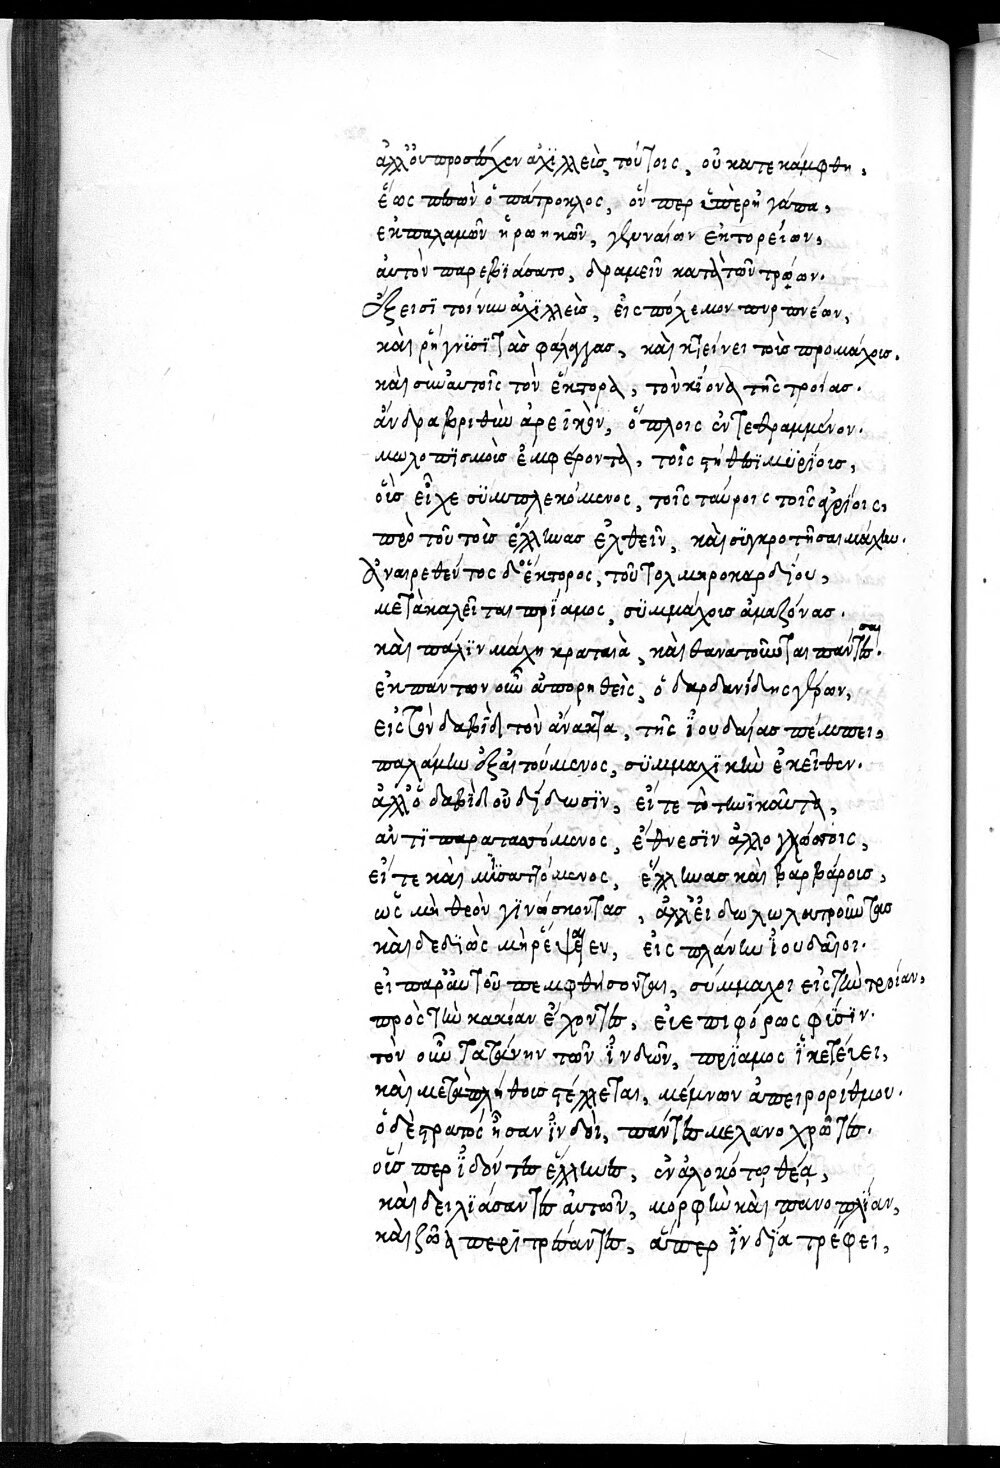 ἀλλ' οὐ προσέσχεν ἀχϊλλεὺς τούτοις, οὐ κατεκάμφθη,
ἕως πεσὼν ὁ πάτροκλος, ὅν περ ὑπερηγάπα,
ἐκ παλαμῶν ἡρωηκῶν, γενναίων ἑκτορείων,
αὐτὸν παρεβϊάσατο, δραμεῖν κατὰ τῶν τρώων.
Ἔξεισϊ τοίνυν ἀχϊλλεὺς, εἰς πόλεμον πῦρ πνέων,
καὶ ῥήγνϋσϊ τὰς φάλαγγας, καὶ κτείνει τοὺς προμάχους.
καὶ σὺν αὐτοῖς τὸν ἕκτορα, τὸν κίονα τῆς τροίας.
ἄνδρα βριθὺν ἀρεϊκὸν, ὅπλοις ἐντεθραμμένον.
μωλωπϊσμοὺς ἐμφέροντα, τοῖς στήθεσϊ μϋρίους,
οὓς εἶχε σϋμπλεκόμενος, τοῖς ταύροις τοῖς ἀγρίοις,
πρὸ τοῦ τοὺς ἕλληνας ἐλθεῖν, καὶ σϋγκροτῆσαι μάχην.
Ἀναιρεθέντος δ' ἕκτορος, τοῦ τολμηροκαρδίου,
μετακαλεῖται πρϊαμος, σϋμμάχους ἀμαζόνας.
καὶ πάλϊν μάχη κραταιὰ, καὶ θανατοῦνται πάντες. σαι
ἐκ πάντων οὖν ἀπορηθεὶς, ὁ δαρδανίδης γέρων,
εἰς τὸν δαβὶδ τὸν ἄνακτα, τῆς ἰουδαίας πέμπει,
παλάμην ἐξαιτούμενος, σϋμμαχϊκὴν ἐκεῖθεν.
ἀλλ' ὁ δαβὶδ οὐ δίδωσϊν, εἴτε τὸ τηνϊκαῦτα,
ἀντϊπαραταττόμενος, ἔθνεσϊν ἀλλογλώσσοις,
εἴτε καὶ μϋσαττόμενος, ἕλληνας καὶ βαρβάρους,
ὡς μὴ θεὸν γϊνώσκοντας, ἀλλ' εἰδωλολατροῦντας
καὶ δεδϊὼς μὴ ῥέψαιεν, εἰς πλάνην ἰουδαῖοι.
εἰ παρ' αὐτοῦ πεμφθήσονται, σύμμαχοι εἰς τὴν τροίαν,
πρὸς τὴν κακίαν ἔχοντες, εὐεπιφόρως φύσϊν.
τὸν οὖν ταυτάνην τῶν ἰνδῶν, πρϊαμος ἱκετεύει,
καὶ μετὰ πλήθους στέλλεται, μέμνων ἀπειραρίθμου.
ὁ δὲ στρατὸς ἦσαν ἰνδοὶ, πάντες μελανοχρῶτες.
οὕς περ ἰδόντες ἕλληνες, ἐν ἀλλοκότῳ θέᾳ,
καὶ δειλϊάσαντες αὐτῶν, μορφὴν καὶ πανοπλϊαν,
καὶ ζῷα περϊτρέσαντες, ἅπερ ἰνδϊα τρέφει,